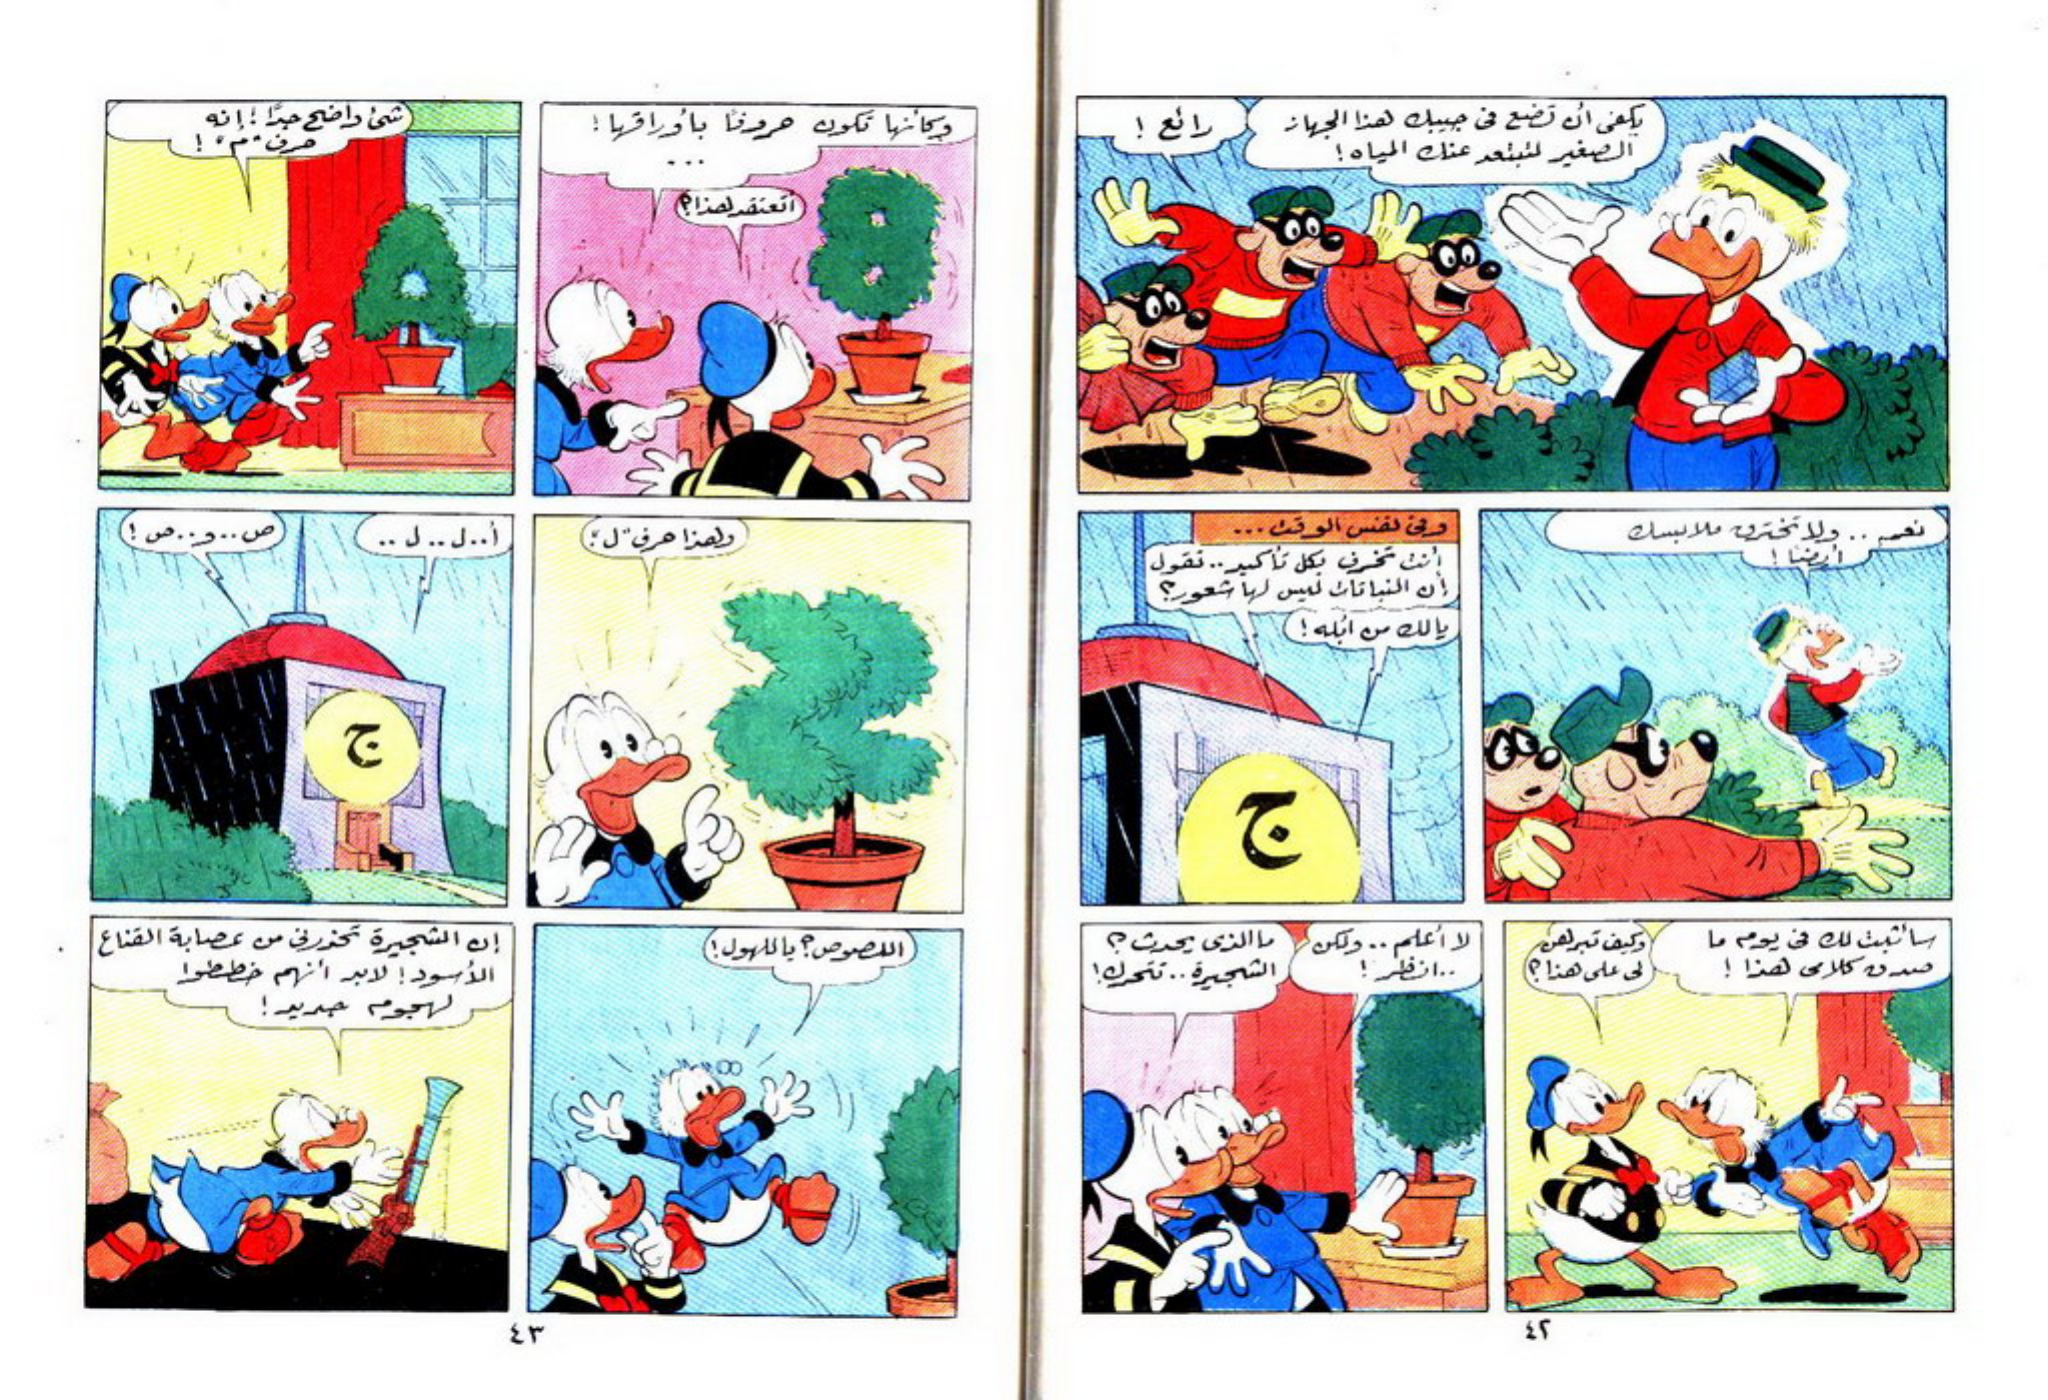 يكفى أن تضع فى جيبك هذا الجهاز
الصغير لتبتعد عنك المياه!
رائع!
نعم.. ولا تخترق ملابسك
أيضا!
وفى نفس الوقت...
أنت تخرف بكل تأكيد.. تقول
إن النباتات ليس لها شعور؟
يالك من أبله!
ج
سأثبت لك فى يوم ما
صدق كلامى هذا!
وكيف تبرهن
لى على هذا؟
لا أعلم.. ولكن
..انظر!
ما الذى يحدث؟
الشجيرة.. تتحرك!
٤٢
وكأنها تكون حروفا بأوراقها!
...
أتعتقد هذا؟
شئ واضح جدًا! إنه
حرف "م"!
ولهذا حرف "ل"؛
أ..ل..ل..
ص..و..ص!
ج
اللصوص؟ ياللهول!
إن الشجيرة تحذرنى من عصابة القناع
الأسود! لابد أنهم خططوا
لهجوم جديد!
٤٣